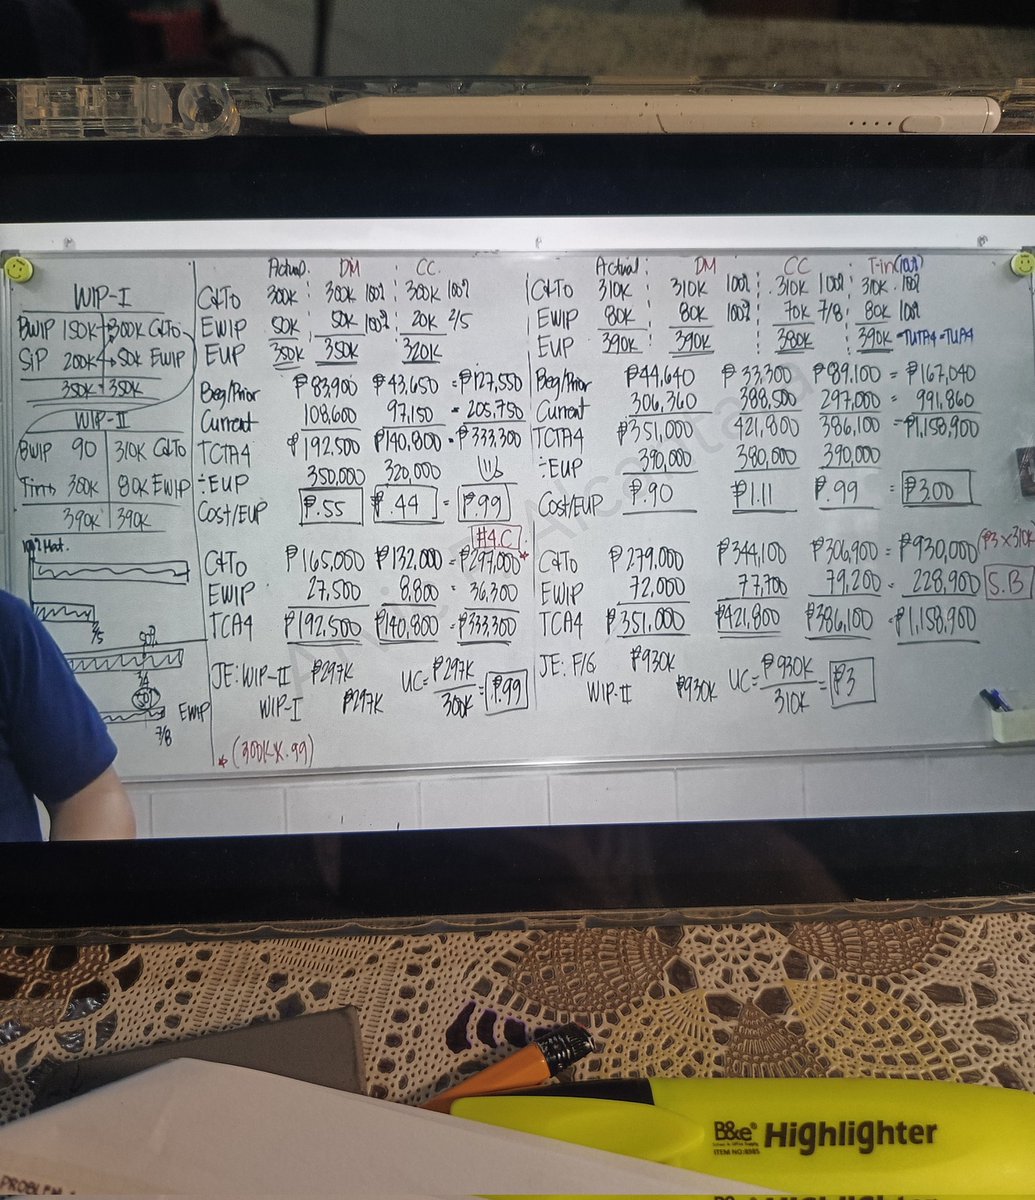 WIP-I
BWIP 150K 300K C&TO
SIP 200K 50K EWIP
350K 350K
WIP-II
BWIP 90 310K C&TO
Tins 300K 80K EWIP
390K 390K
Mat.
2/5
50%
EWIP
7/8
Actual : DM : CC
C&TO 300K : 300K 100% : 300K 100%
EWIP 50K : 50K 100% : 20K 2/5
EUP 350K 350K 320K
Beg/Prior ₱83,900 ₱43,650 = ₱127,550
Current 108,600 97,150 = 205,750
TCTA4 ₱192,500 ₱140,800 = ₱333,300
÷EUP 350,000 320,000
Cost/EUP ₱.55 ₱.44 = ₱.99
#4.C
C&TO ₱165,000 ₱132,000 = ₱297,000 *
EWIP 27,500 8,800 = 36,300
TCA4 ₱192,500 ₱140,800 = ₱333,300
JE: WIP-II ₱297K
WIP-I ₱297K
UC= ₱297K
300K
= ₱.99
* (300K x .99)
Actual : DM : CC : T-in (TOR)
C&TO 310K : 310K 100% : 310K 100% : 310K 100%
EWIP 80K : 80K 100% : 70K 7/8 : 80K 100%
EUP 390K : 390K 380K : 390K TUTA4=TUA4
Beg/Prior ₱44,640 ₱33,300 ₱89,100 = ₱167,040
Current 306,360 388,500 297,000 = 991,860
TCTA4 ₱351,000 421,800 386,100 = ₱1,158,900
÷EUP 390,000 380,000 390,000
Cost/EUP ₱.90 ₱1.11 ₱.99 = ₱3.00
C&TO ₱279,000 ₱344,100 ₱306,900 = ₱930,000 (₱3 x 310K
EWIP 72,000 77,700 79,200 = 228,900 S.B
TCA4 ₱351,000 ₱421,800 ₱386,100 = ₱1,158,900
JE: F/G ₱930K
WIP-II ₱930K
UC= ₱930K
310K
= ₱3
B&e Highlighter
ITEM NO:8985
PROBLEM